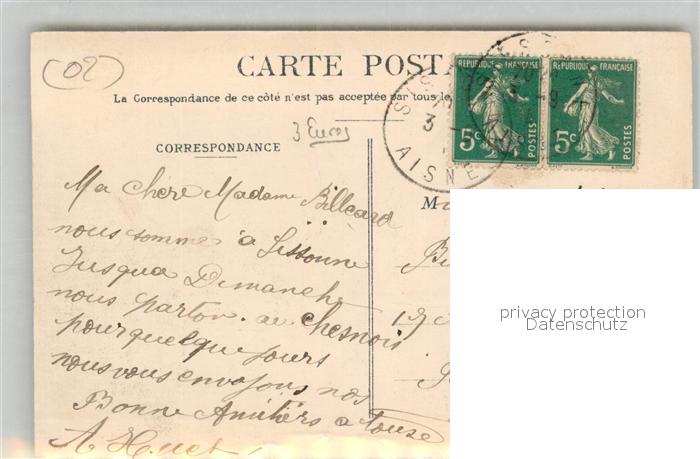 (02)
CARTE POSTA
La Correspondance de ce côté n'est pas acceptée par tous le
3 Euros
CORRESPONDANCE
REPUBLIQUE FRANÇAISE
5c POSTES
REPUBLIQUE FRANÇAISE
5c POSTES
AISNE
Ma Chère Madame Billeard
nous somme à Sissonne
Jusqua Dimanche
nous parton au Chesnois
pour quelque jours
nous vous envoyons nos
Bonne Amitiers a touse
A Huet
M
privacy protection
Datenschutz